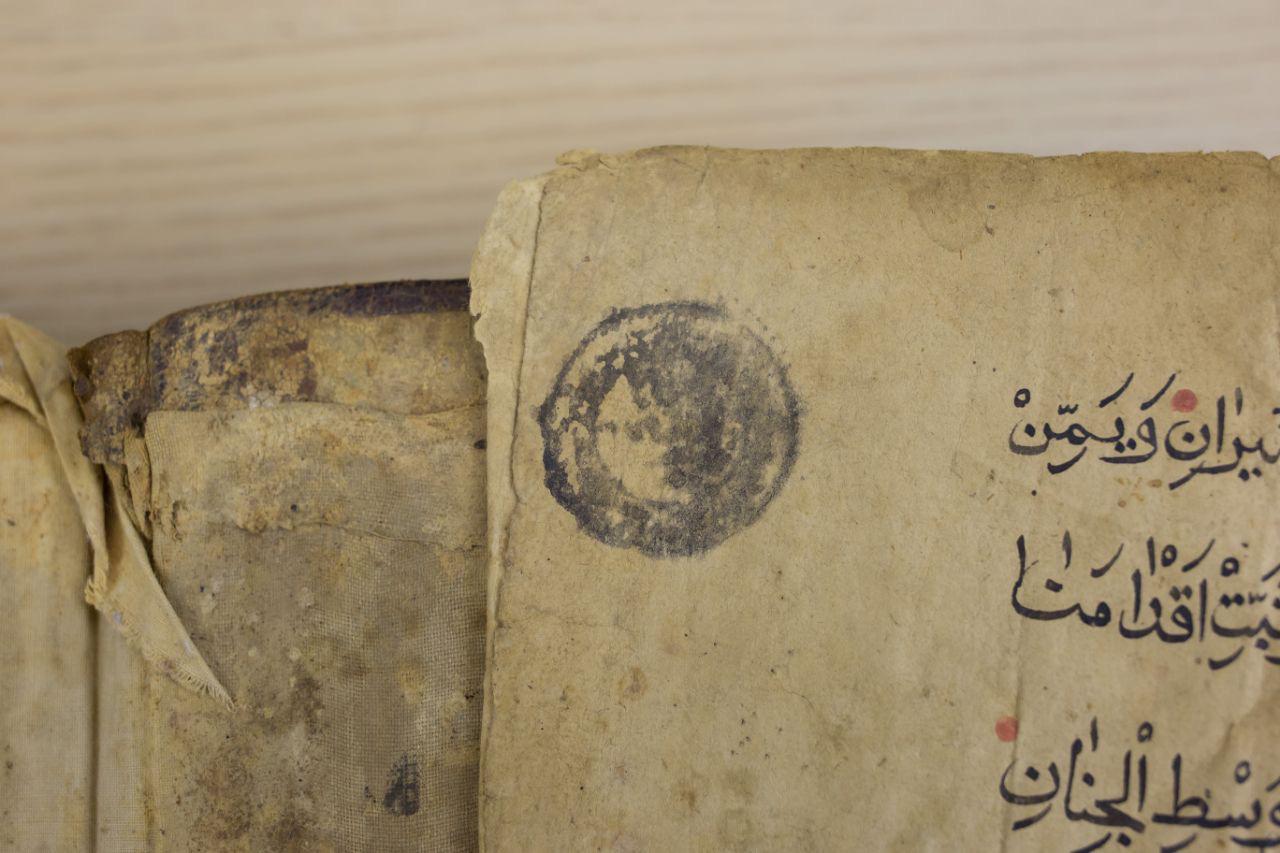 نِيرَانِ وَيَمِّنْ
ثَبِّتْ اَقْدَامَنَا
وَسْطِ الْجِنَانِ